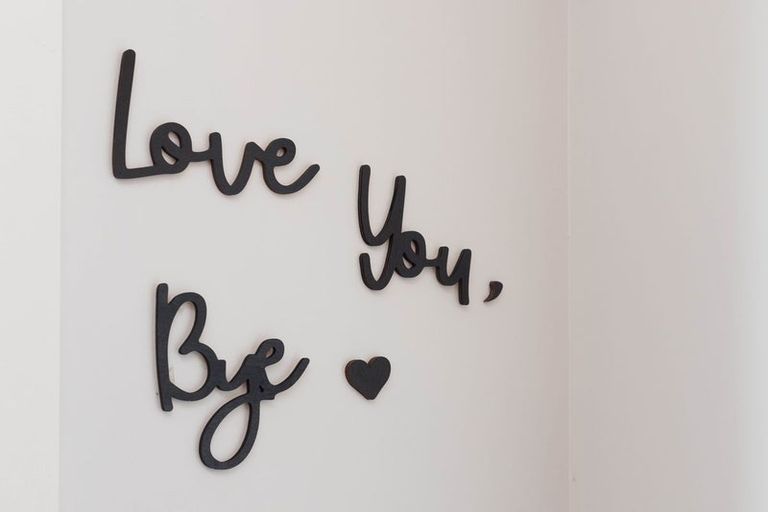 Love
You,
Bye ♥